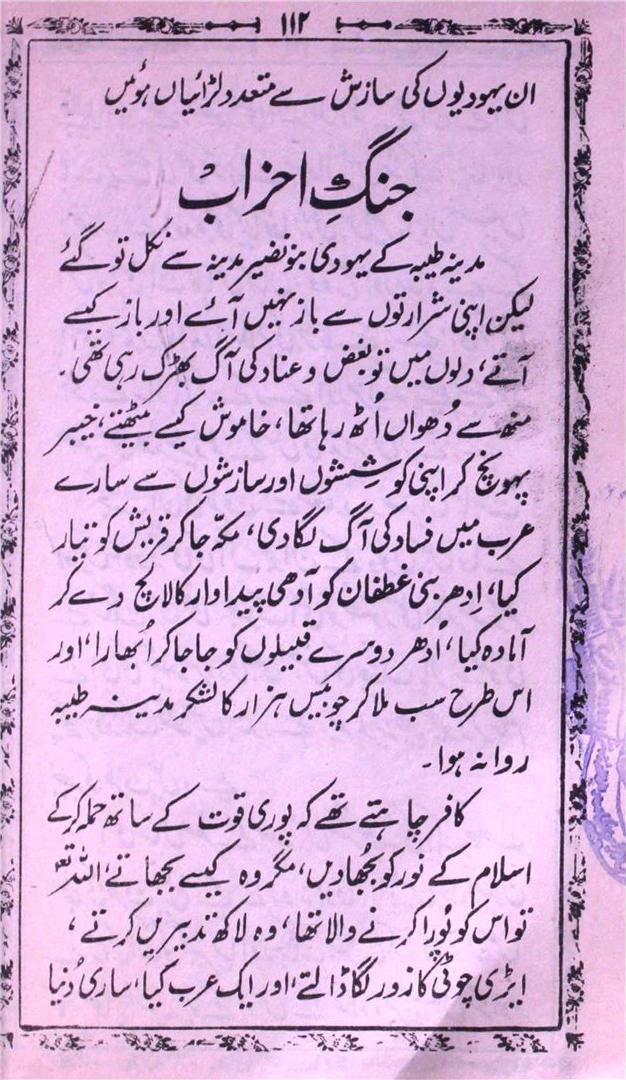 ۱۱۲
ان یہودیوں کی سازش سے متعدد لڑائیاں ہوئیں
جنگِ احزاب
مدینہ طیبہ کے یہودی بنو نضیر مدینہ سے نکل تو گئے
لیکن اپنی شرارتوں سے باز نہیں آئے اور باز کیسے
آتے، دلوں میں تو بغض و عناد کی آگ بھڑک رہی تھی۔
منھ سے دُھواں اُٹھ رہا تھا، خاموش کیسے بیٹھتے، خیبر
پہونچ کر اپنی کوششوں اور سازشوں سے سارے
عرب میں فساد کی آگ لگا دی، مکہّ جا کر قریش کو تیار
کیا، اِدھر بنی غطفان کو آدھی پیداوار کا لالچ دے کر
آمادہ کیا، اُدھر دوسرے قبیلوں کو جا جا کر اُبھارا، اور
اس طرح سب ملا کر چوبیس ہزار کا لشکر مدینہ طیبہ
روانہ ہوا۔
کافر چاہتے تھے کہ پوری قوت کے ساتھ حملہ کر کے
اسلام کے نور کو بُجھا دیں، مگر وہ کیسے بجھاتے، اللہ تعـ
تو اس کو پُورا کرنے والا تھا، وہ لاکھ تدبیریں کرتے،
ایڑی چوٹی کا زور لگا ڈالتے، اور ایک عرب کیا، ساری دُنیا